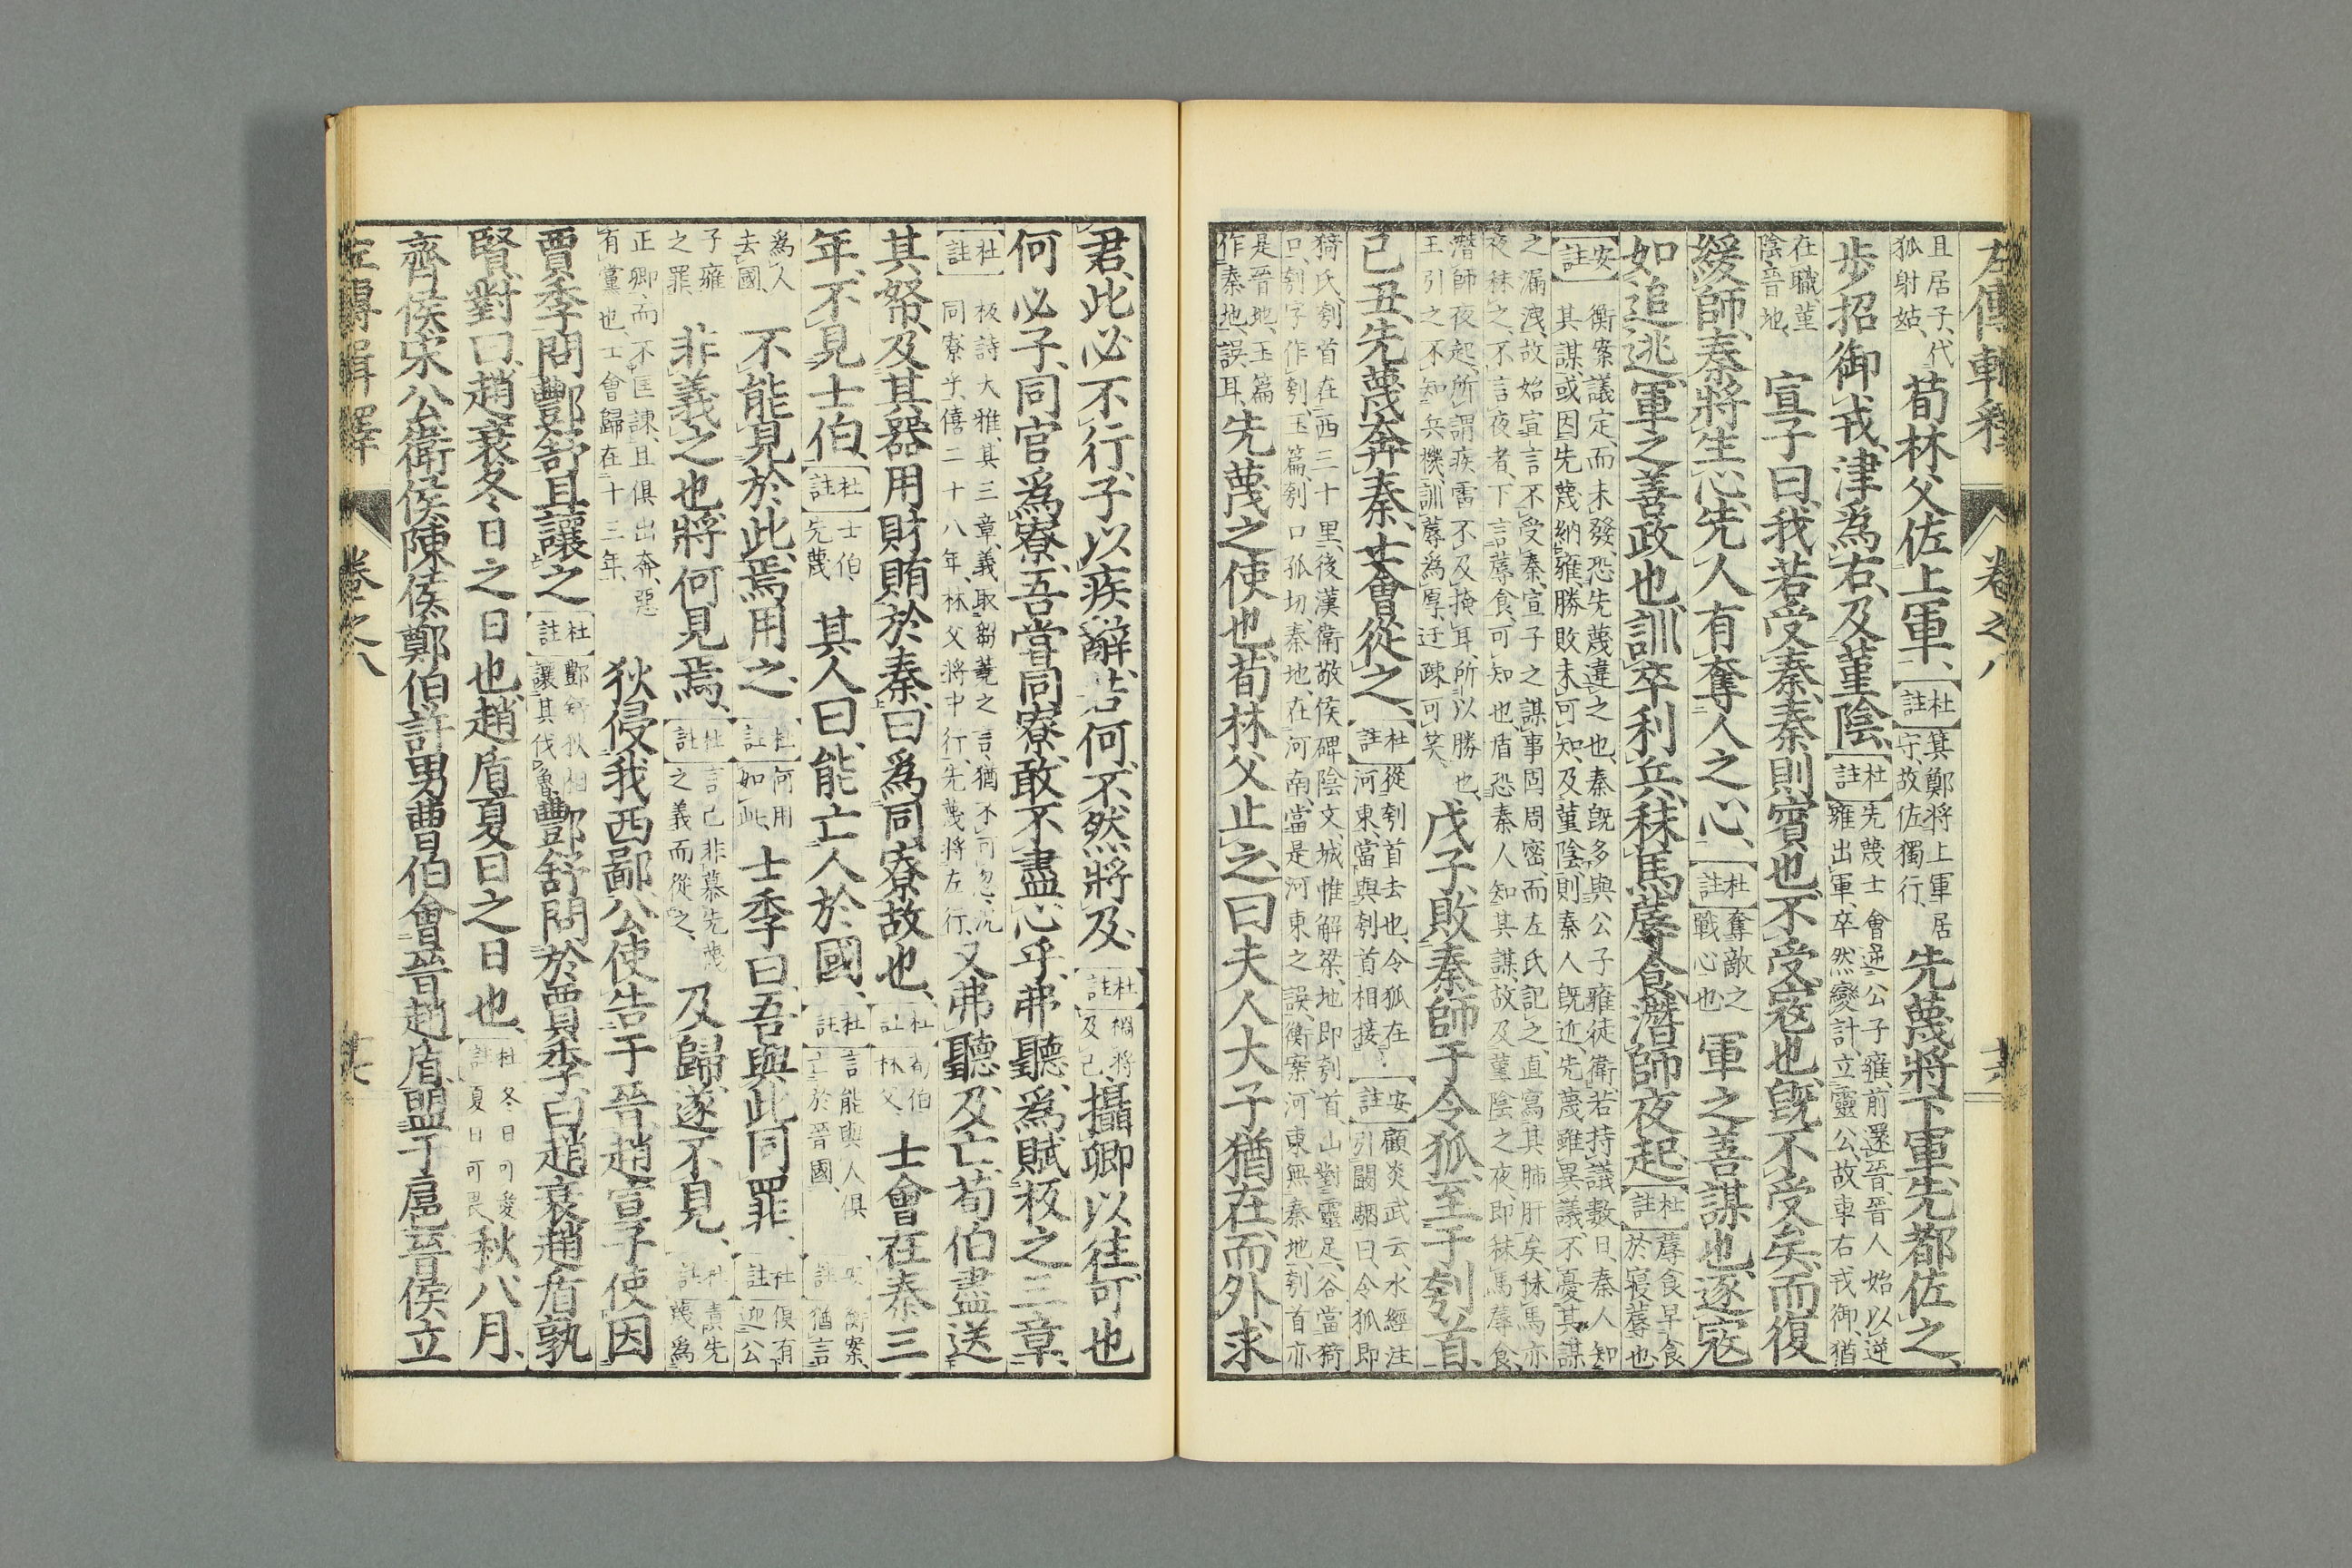 左傳輯釋 卷之八
且居子、代狐射姑、荀林父佐上軍、杜註箕鄭將上軍居守、故佐獨行、先蔑將下軍、先都佐之、
步招御戎、戎津爲右、及菫陰、杜註先蔑士會逆公子雍、前還晉、晉人始以逆雍出軍、卒然變計、立靈公、故車右戎御、猶
在職、菫陰晉地、宣子曰、我若受秦、秦則賓也、不受寇也、既不受矣、而復
緩師、秦將生心、先人有奪人之心、杜註奪敵之戰心也軍之善謀也、逐寇
如追逃、軍之善政也、訓卒利兵、秣馬蓐食、潛師夜起、杜註蓐食早食於寢蓐也、
安註衡案議定、而未發、恐先蔑違之也、秦既多與公子雍徒衛、若持議數日、秦人知其謀、或因先蔑納雍、勝敗未可知、及菫陰、則秦人既近、先蔑雖異議、不憂其謀
之漏洩、故始宣言不受秦、宣子之謀事固周密、而左氏記之、直寫其肺肝矣、秣馬亦夜秣之、不言夜者、下言蓐食、可知也、盾恐秦人知其謀、故及菫陰之夜、即秣馬蓐食、
潛師夜起、所謂疾雷不及掩耳、所以勝也、王引之不知兵機、訓蓐爲厚、迂疎可笑、戊子、敗秦師于令狐、至于刳首、
己丑、先蔑奔秦、士會從之、杜註從刳首去也、令狐在河東、當與刳首相接、安註顧炎武云、水經注引闞駰曰、令狐即
猗氏、刳首在西三十里、後漢衛敬侯碑陰文、城惟解梁、地即刳首、山對靈足、谷當猗口、刳字作刳、玉篇、刳口孤切、秦地、在河南、當是河東之誤、衡案、河東無秦地、刳首亦
是晉地、玉篇作秦地、誤耳、先蔑之使也、荀林父止之曰、夫人大子猶在、而外求
君、此必不行、子以疾辭、若何、不然將及、杜註禍將及己、攝卿以往可也
何必子、同官爲寮、吾嘗同寮、敢不盡心乎、弗聽、爲賦板之三章、
杜註板詩大雅、其三章、義取芻蕘之言、猶不可忽、況同寮乎、僖二十八年、林父將中行、先蔑將左行、又弗聽、及亡、荀伯盡送
其帑、及其器用財賄於秦、曰、爲同寮故也、杜註荀伯林父、士會在秦三
年、不見士伯、杜註士伯、先蔑其人曰、能亡人於國、杜註言能與人俱亡於晉國、安註衡案、猶言
爲人去國、不能見於此、焉用之、杜註何用如此、士季曰、吾與此同罪、杜註俱有迎公
子雍之罪、非義之也、將何見焉、杜註言己非慕先蔑之義而從之、及歸、遂不見、杜註責先蔑爲
正卿、而不匡諫、且俱出奔、惡有黨也、士會歸在十三年、狄侵我西鄙、公使告于晉、趙宣子使因
賈季問酆舒、且讓之、杜註酆舒狄相、讓其伐魯、酆舒問於賈季、曰、趙衰趙盾孰
賢、對曰、趙衰冬日之日也、趙盾夏日之日也、杜註冬日可愛、夏日可畏、秋八月、
齊侯宋公衛侯陳侯鄭伯許男曹伯會晉趙盾、盟于扈、晉侯立
左傳輯釋 卷之八